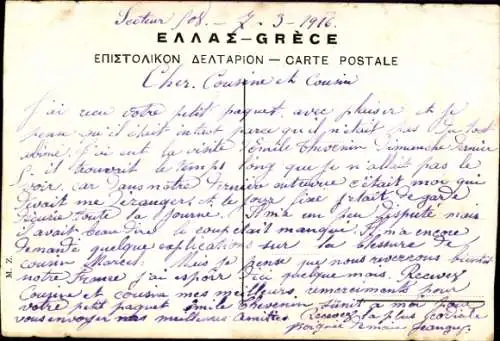 Secteur 508. — 7-3-1916.
ΕΛΛΑΣ—GRÈCE
ΕΠΙΣΤΟΛΙΚΟΝ ΔΕΛΤΑΡΙΟΝ — CARTE POSTALE
Cher Cousine et Cousin
J'ai recu votre petit paquet avec plaisir et je
pense qu'il était intact parce qu'il n'était pas du tout
abimé. J'ai eut la visite Emile Thevenin Dimanche dernier
il trouvait le temps long que je n'allait pas le
voir, car dans notre dernière entrevue c'était moi qui
devait me déranger, et le jour fixe j'était de garde
d'écurie toute la journée. Il m'a un peu disputé mais
j'avait beau dire le coup était manqué. Il m'a encore
demandé quelque explications sur la blessure de
cousin Marcel. Mais je pense que nous reverrons bientôt
notre France j'ai espoir d'ici quelque mois. Recevez
Cousine et cousin mes meilleurs remerciments pour
votre petit paquet Emile Thevenin s'unit a moi pour
vous envoyer nos meilleures amitiés. Recevez la plus cordiale
poignée de main
M. Z.